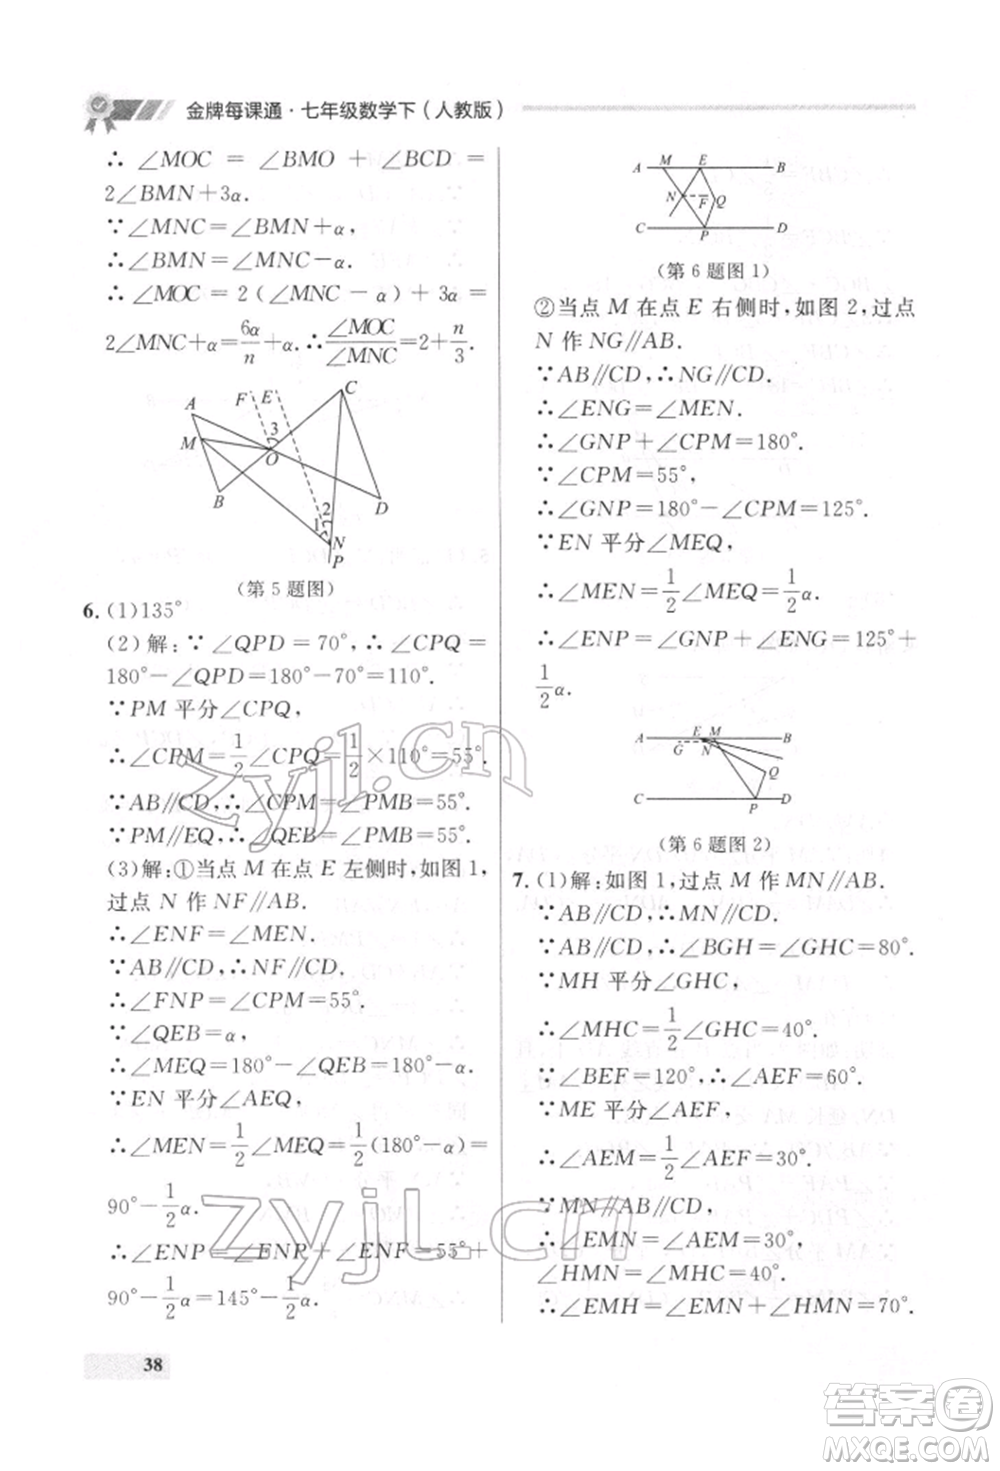 金牌每课通·七年级数学下(人教版)
∴ ∠MOC = ∠BMO + ∠BCD =
2∠BMN+3α.
∵∠MNC=∠BMN+α,
∴∠BMN=∠MNC-α.
∴∠MOC=2(∠MNC-α)+3α=
2∠MNC+α=6α/n+α. ∴∠MOC/∠MNC=2+n/3.
A
F
E
C
M
3
O
B
D
1
2
N
P
(第5题图)
6. (1)135°
(2)解:∵∠QPD=70°,∴∠CPQ=
180°-∠QPD=180°-70°=110°.
∵PM平分∠CPQ,
∴∠CPM=1/2∠CPQ=1/2×110°=55°.
∵AB//CD,∴∠CPM=∠PMB=55°.
∵PM//EQ,∴∠QEB=∠PMB=55°.
(3)解:①当点M在点E左侧时,如图1,
过点N作NF//AB.
∴∠ENF=∠MEN.
∵AB//CD,∴NF//CD.
∴∠FNP=∠CPM=55°.
∵∠QEB=α,
∴∠MEQ=180°-∠QEB=180°-α.
∵EN平分∠AEQ,
∴∠MEN=1/2∠MEQ=1/2(180°-α)=
90°-1/2α.
∴∠ENP=∠ENF+∠FNP=55°+
90°-1/2α=145°-1/2α.
A
M
E
B
N
F
Q
C
P
D
(第6题图1)
②当点M在点E右侧时,如图2,过点
N作NG//AB.
∵AB//CD,∴NG//CD.
∴∠ENG=∠MEN.
∴∠GNP+∠CPM=180°.
∵∠CPM=55°,
∴∠GNP=180°-∠CPM=125°.
∵EN平分∠MEQ,
∴∠MEN=1/2∠MEQ=1/2α.
∴∠ENP=∠GNP+∠ENG=125°+
1/2α.
A
E
M
B
G
N
Q
C
P
D
(第6题图2)
7. (1)解:如图1,过点M作MN//AB.
∵AB//CD,∴MN//CD.
∵AB//CD,∴∠BGH=∠GHC=80°.
∵MH平分∠GHC,
∴∠MHC=1/2∠GHC=40°.
∵∠BEF=120°,∴∠AEF=60°.
∵ME平分∠AEF,
∴∠AEM=1/2∠AEF=30°.
∵MN//AB//CD,
∴∠EMN=∠AEM=30°,
∠HMN=∠MHC=40°.
∴∠EMH=∠EMN+∠HMN=70°.
38
zyjl.cn
zyjl.cn
答案圈
MXQE.COM